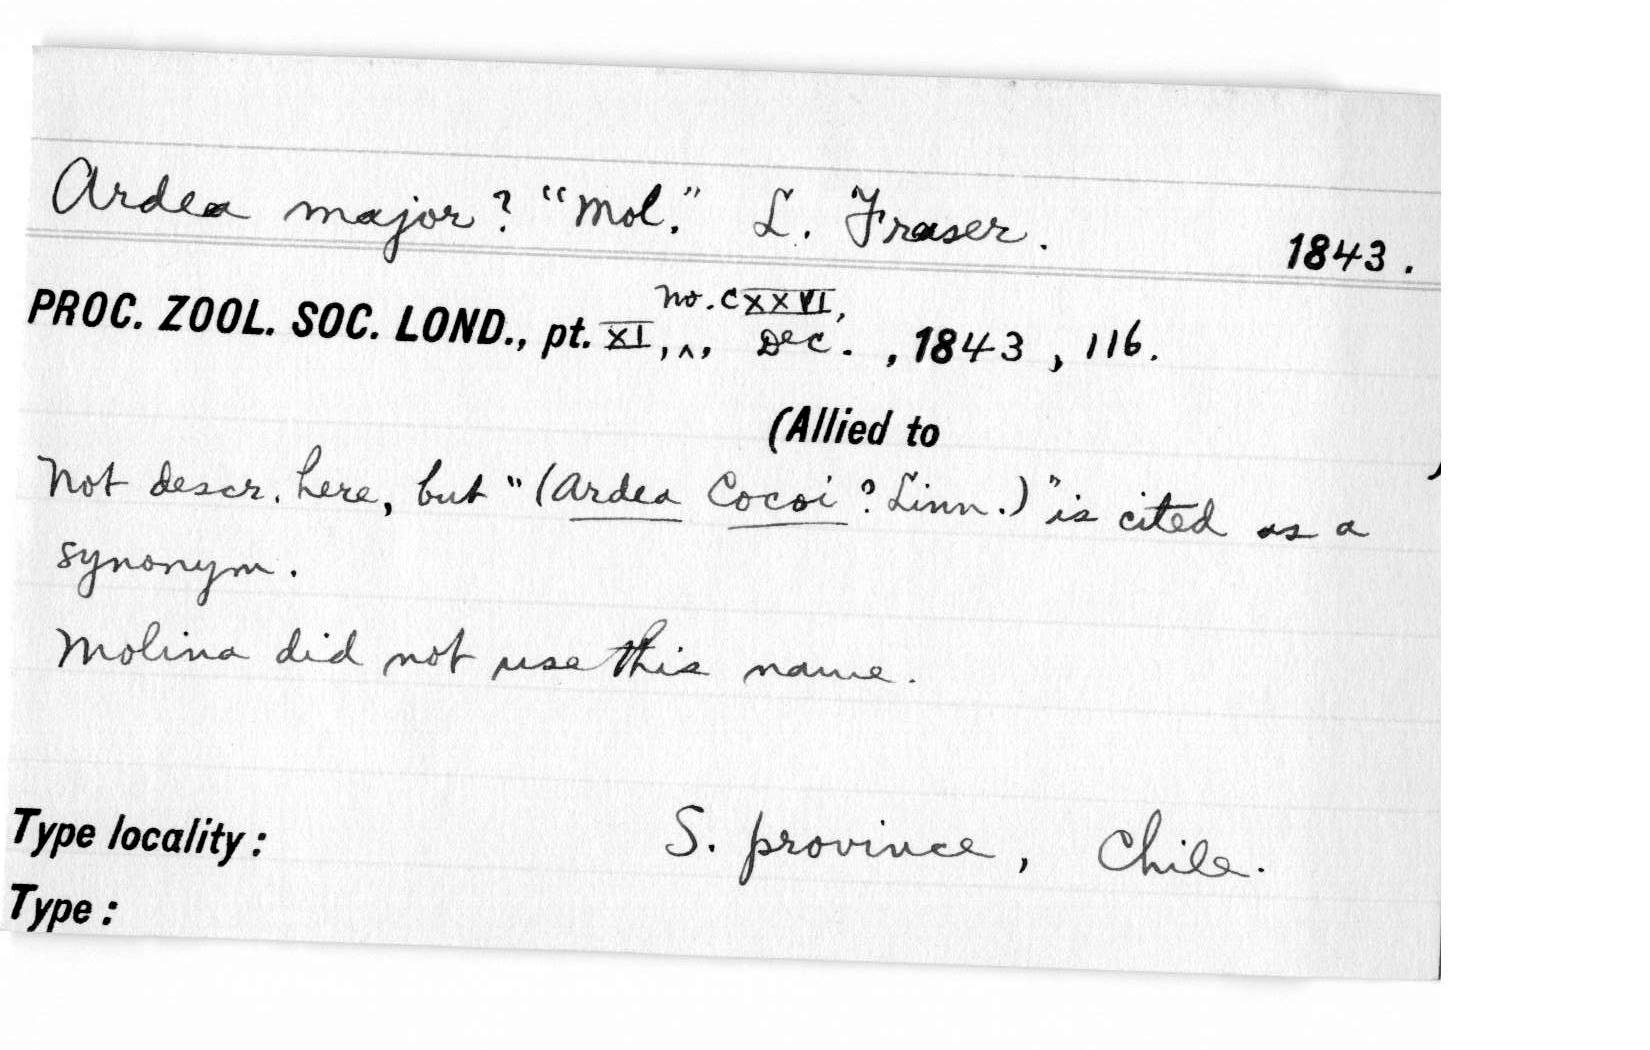 Ardea major? "Mol." L. Fraser. 1843.
PROC. ZOOL. SOC. LOND., pt. XI, ^, no. CXXVI, Dec. , 1843, 116.
(Allied to )
Not descr. here, but "(Ardea Cocoi? Linn.)" is cited as a
synonym.
Molina did not use this name.
Type locality: S. province, Chile.
Type: